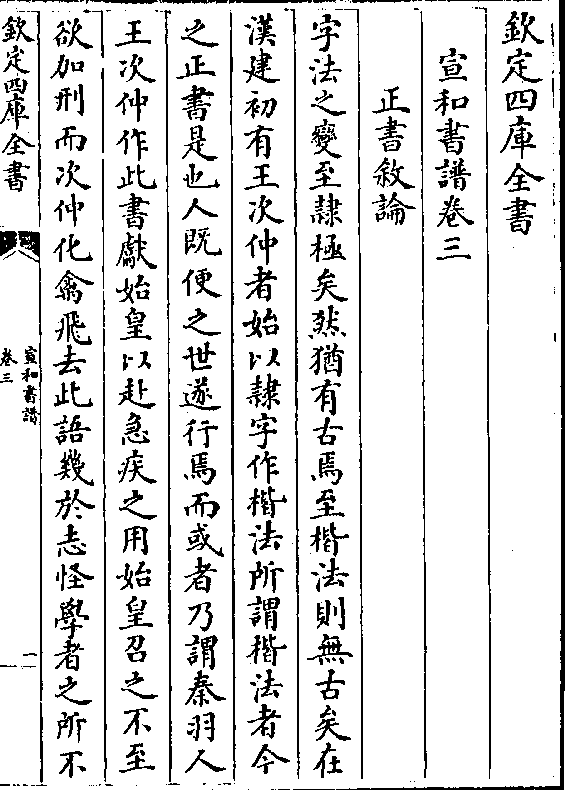 欽定四庫全書
宣和書譜卷三
正書敘論
字法之變至隷極矣然猶有古焉至楷法則無古矣在
漢建初有王次仲者始以隷字作楷法所謂楷法者今
之正書是也人既便之世遂行焉而或者乃謂秦羽人
王次仲作此書獻始皇以赴急疾之用始皇召之不至
欲加刑而次仲化禽飛去此語幾於志怪學者之所不
欽定四庫全書
宣和書譜
卷三
一